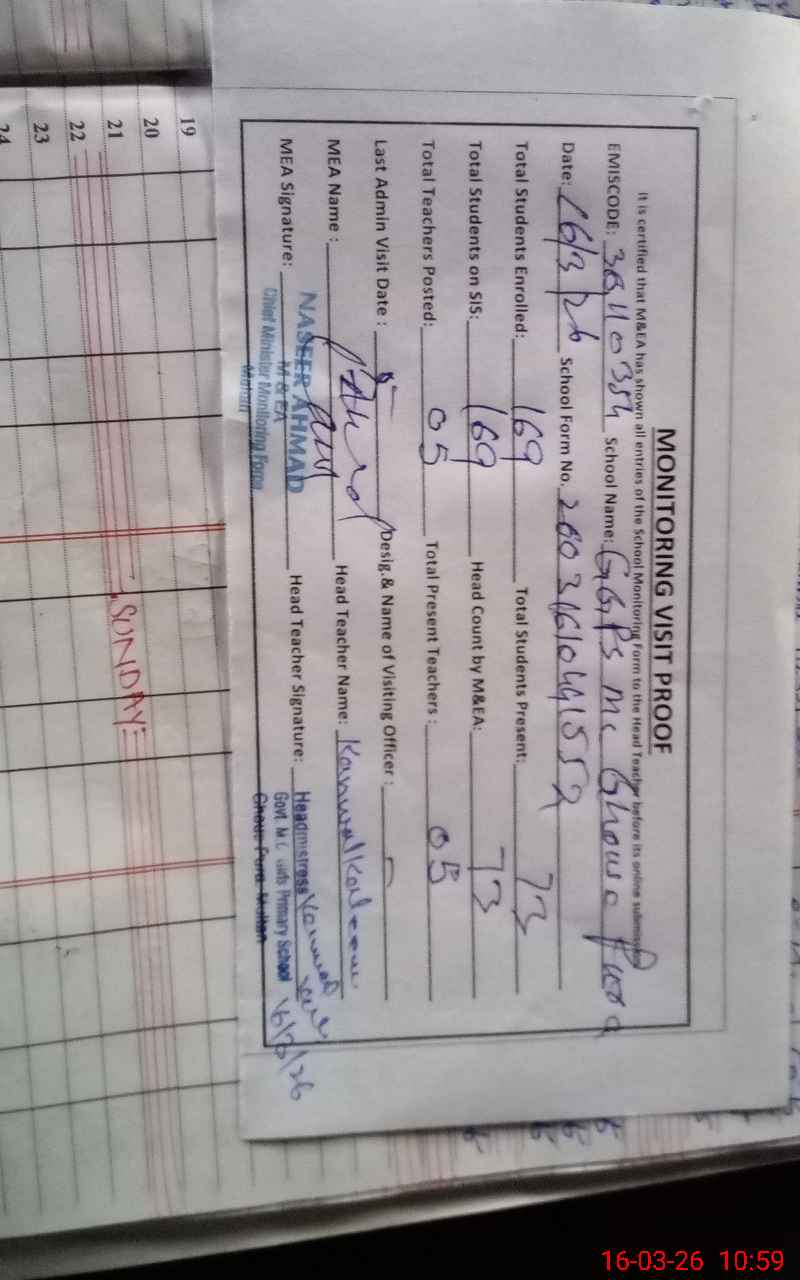 MONITORING VISIT PROOF
It is certified that M&EA has shown all entries of the School Monitoring Form to the Head Teacher before its online
EMISCODE: School Name: GGPS Mc Ghous Pura
Date: 16/3/26 School Form No.
Total Students Enrolled: 169 Total Students Present: 73
Total Students on SIS: 169 Head Count by M&EA: 73
Total Teachers Posted: 05 Total Present Teachers : 05
Last Admin Visit Date : Desig.& Name of Visiting Officer :
MEA Name : Head Teacher Name: Kanwal
MEA Signature: Head Teacher Signature:
NASEER AHMAD
M & EA
Chief Minister Monitoring Force
Multan
Headmistress
Govt M.C Girls Primary School
Multan
16/3/26
19
20
21 SUNDAY
22
23
24
16-03-26 10:59